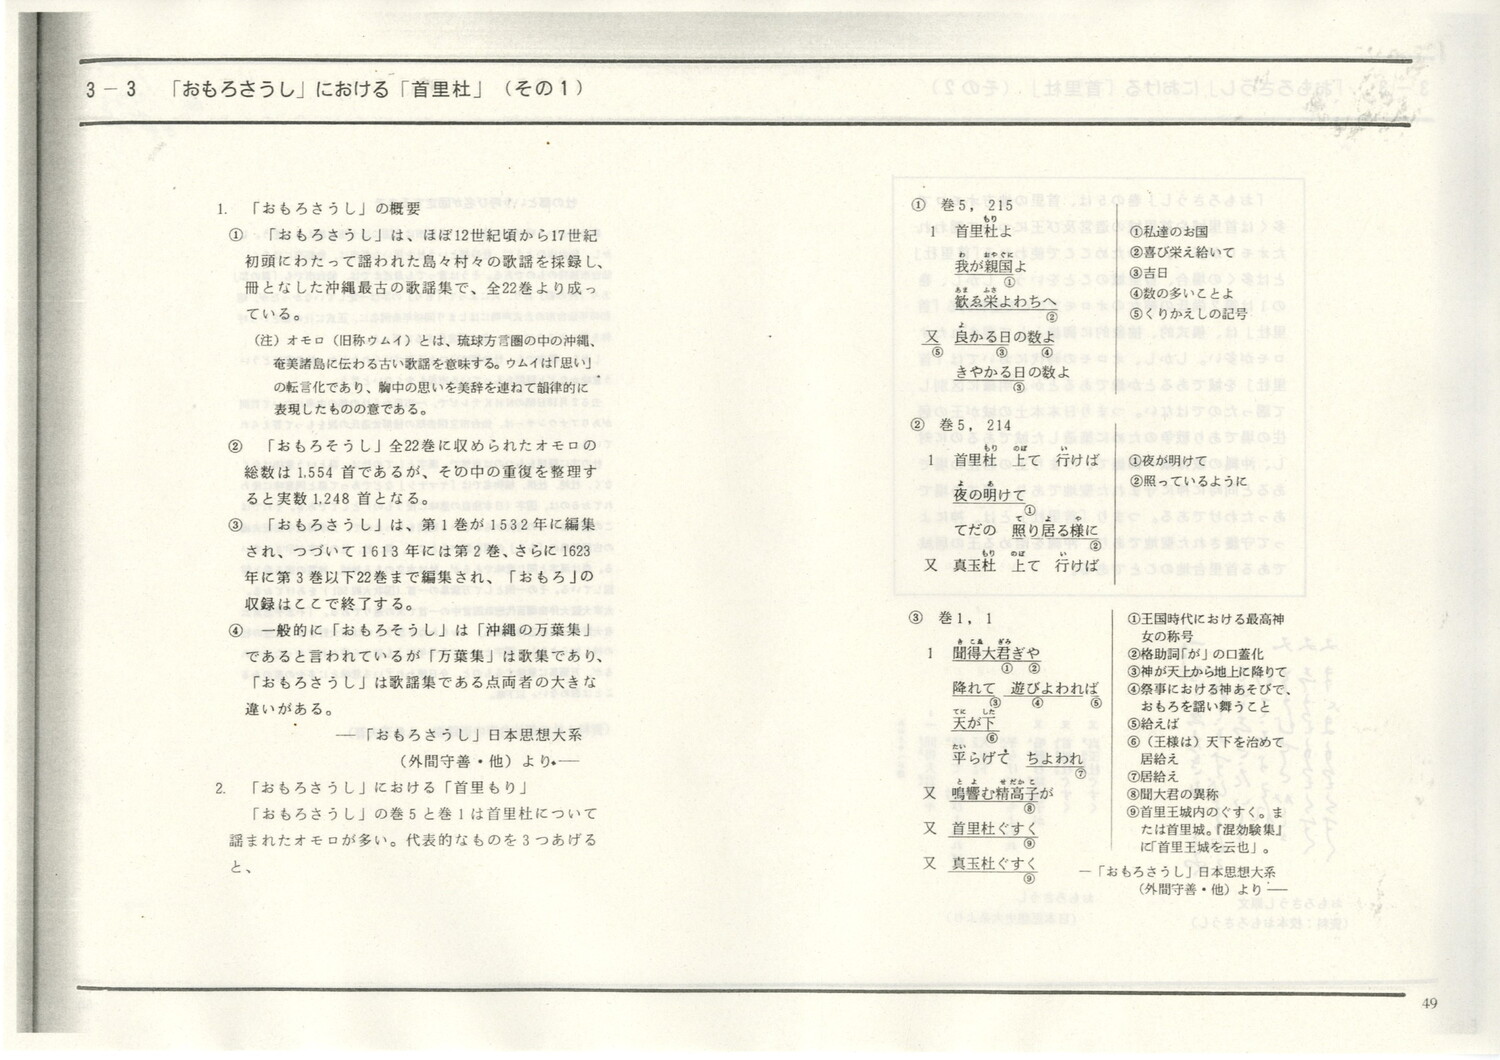 3－3　「おもろさうし」における「首里杜」（その1）
1.　「おもろさうし」の概要
①　「おもろさうし」は、ほぼ12世紀頃から17世紀
初頭にわたって謡われた島々村々の歌謡を採録し、
冊となした沖縄最古の歌謡集で、全22巻より成っ
ている。
（注）オモロ（旧称ウムイ）とは、琉球方言圏の中の沖縄、
奄美諸島に伝わる古い歌謡を意味する。ウムイは「思い」
の転言化であり、胸中の思いを美辞を連ねて韻律的に
表現したものの意である。
②　「おもろそうし」全22巻に収められたオモロの
総数は1.554 首であるが、その中の重復を整理す
ると実数1,248 首となる。
③　「おもろさうし」は、第1巻が1532年に編集
され、つづいて1613年には第2巻、さらに1623
年に第3巻以下22巻まで編集され、「おもろ」の
収録はここで終了する。
④　一般的に「おもろそうし」は「沖縄の万葉集」
であると言われているが「万葉集」は歌集であり、
「おもろさうし」は歌謡集である点両者の大きな
違いがある。
―「おもろさうし」日本思想大系
（外間守善・他）より―
2.　「おもろさうし」における「首里もり」
「おもろさうし」の巻5と巻1は首里杜について
謡まれたオモロが多い。代表的なものを3つあげる
と、
①　巻5，215
もり
1　首里杜よ
わ　おやぐに
我が親国よ
①
あま　ふさ
歓ゑ栄よわちへ
②
よ
又　良かる日の数よ
⑤　③　④
きやかる日の数よ
③
①私達のお国
②喜び栄え給いて
③吉日
④数の多いことよ
⑤くりかえしの記号
②　巻5，214
もり　のぼ　い
1　首里杜　上て　行けば
よ　あ
夜の明けて
①
て　よ　や
てだの　照り居る様に
②
もり　のぼ　い
又　真玉杜　上て　行けば
①夜が明けて
②照っているように
③　巻1，1
きこゑ　ぎみ
1　聞得大君ぎや
①　②
降れて　遊びよわれば
③　④　⑤
てに　した
天が下
⑥
たい
平らげて　ちよわれ
⑦
とよ　せだかこ
又　鳴響む精高子が
⑧
又　首里杜ぐすく
⑨
又　真玉杜ぐすく
⑨
①王国時代における最高神
女の称号
②格助詞「が」の口蓋化
③神が天上から地上に降りて
④祭事における神あそびで、
おもろを謡い舞うこと
⑤給えば
⑥（王様は）天下を治めて
居給え
⑦居給え
⑧聞大君の異称
⑨首里王城内のぐすく。ま
たは首里城。『混効験集』
に「首里王城を云也」。
―「おもろさうし」日本思想大系
（外間守善・他）より―
49